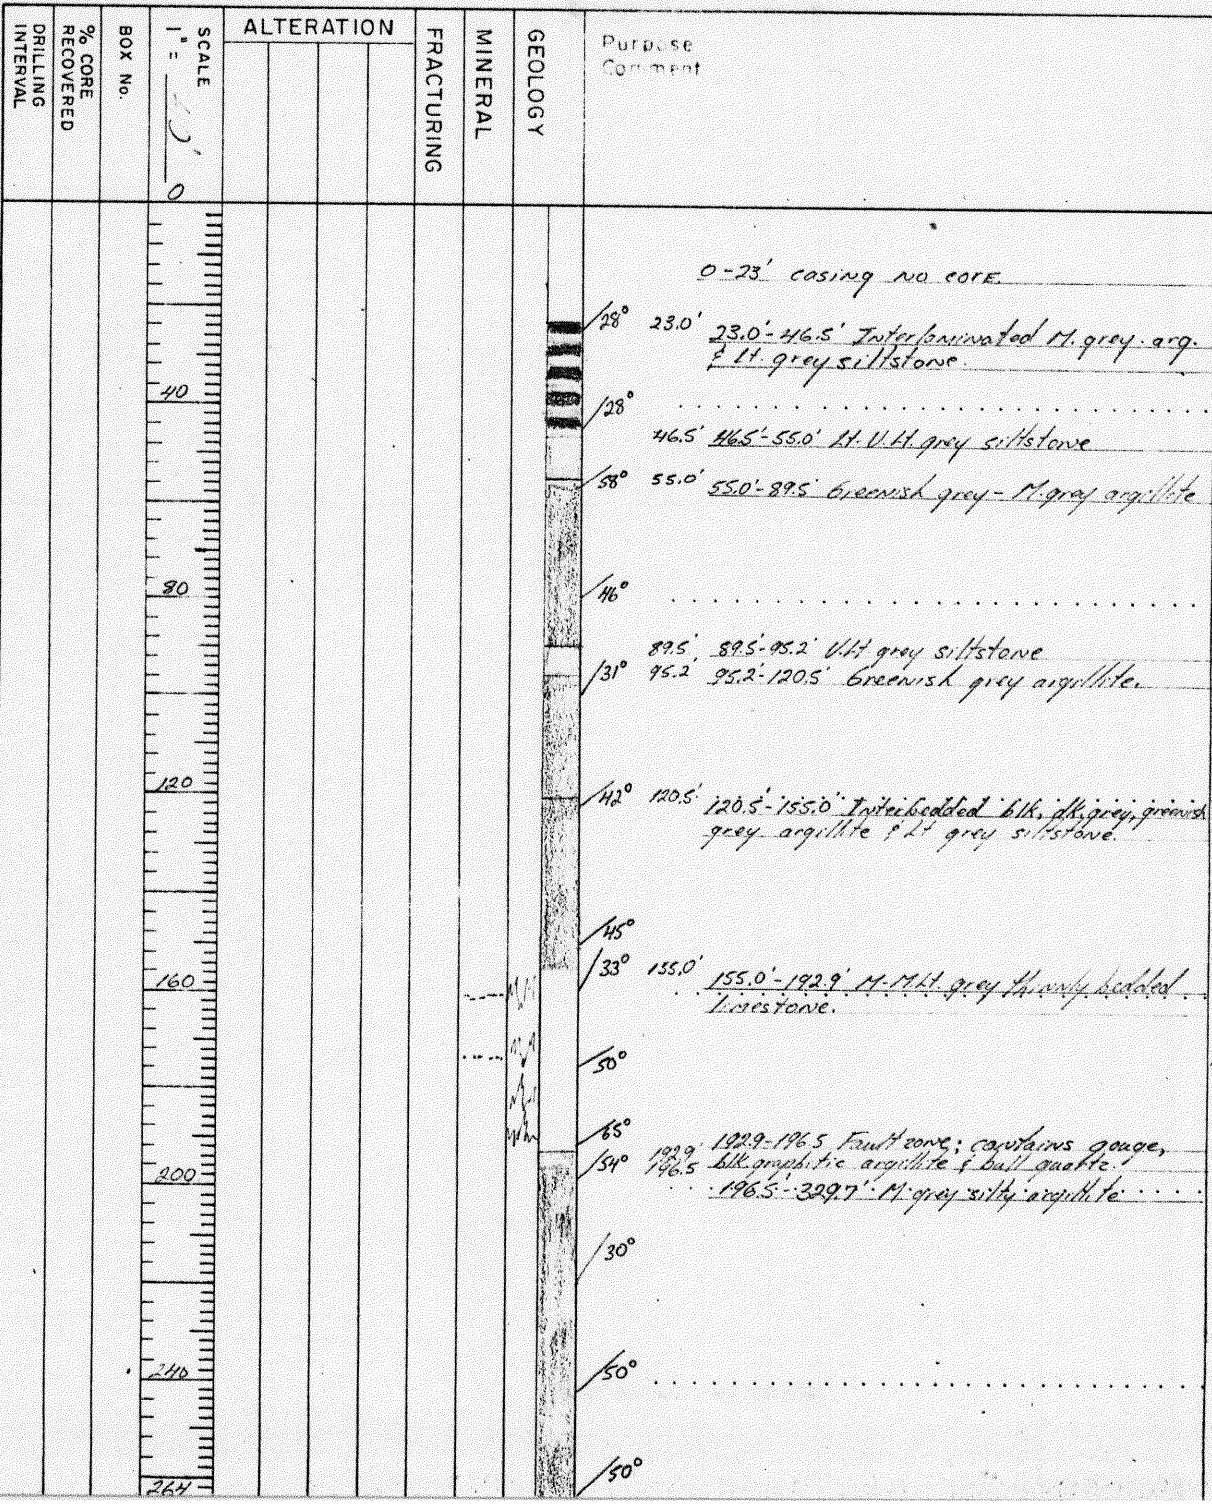 DRILLING INTERVAL
% CORE RECOVERED
BOX No.
SCALE
1" =
0
ALTERATION
FRACTURING
MINERAL
GEOLOGY
Purpose
Comment
0-23' casing no core.
28° 23.0' 23.0'-46.5' Interlaminated M. grey arg.
& Lt. grey siltstone.
40
28°
46.5' 46.5'-55.0' Lt-V.Lt. grey siltstone
58° 55.0' 55.0'-89.5' Greenish grey - M. grey argillite
80
46°
89.5' 89.5'-95.2' V.Lt grey siltstone
31° 95.2' 95.2'-120.5' Greenish grey argillite.
120
42° 120.5' 120.5'-155.0' Interbedded blk, dk, grey, greenish
grey argillite & Lt grey siltstone.
45°
33° 155.0' 155.0'-192.9' M-M.Lt. grey thinly bedded
limestone.
160
50°
65°
192.9' 192.9-196.5 Fault zone; contains gouge,
54° 196.5 blk graphitic argillite & bull quartz.
200
196.5'-329.7' M. grey silty argillite
30°
240
50°
264
50°